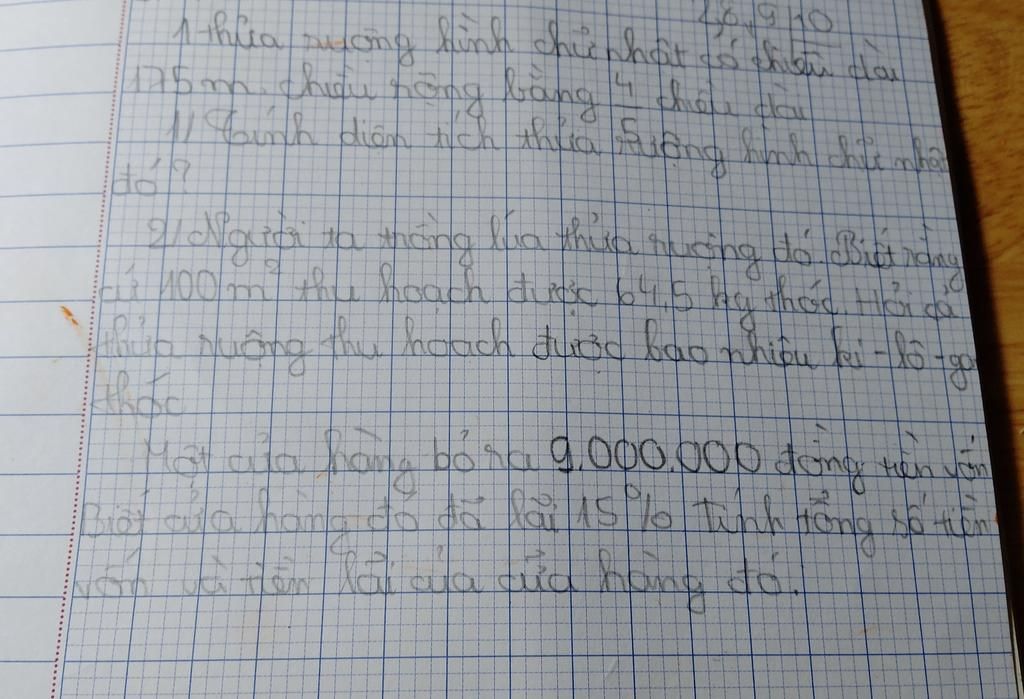 28, 9, 10
1 thửa ruộng hình chữ nhật có chiều dài
175m. chiều rộng bằng 4/5 chiều dài
1) Tính diện tích thửa ruộng hình chữ nhật
đó?
2) Người ta trồng lúa thửa ruộng đó. Biết rằng
cứ 100m² thu hoạch được 64,5 kg thóc. Hỏi cả
thửa ruộng thu hoạch được bao nhiêu ki-lô-ga
thóc
Một cửa hàng bỏ ra 9.000.000 đồng tiền vốn
Biết cửa hàng đó đã lãi 15% tính tổng số tiền
vốn và tiền lãi của cửa hàng đó.